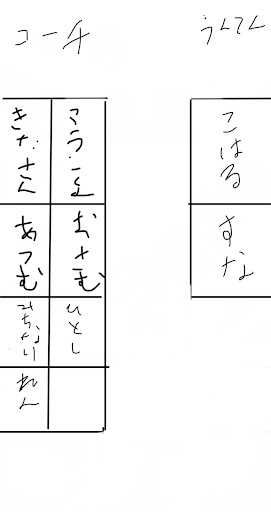 コーチ
うんてん
きださん
あつむ
おさむ
みちなり
ひとし
れん
こはる
すな